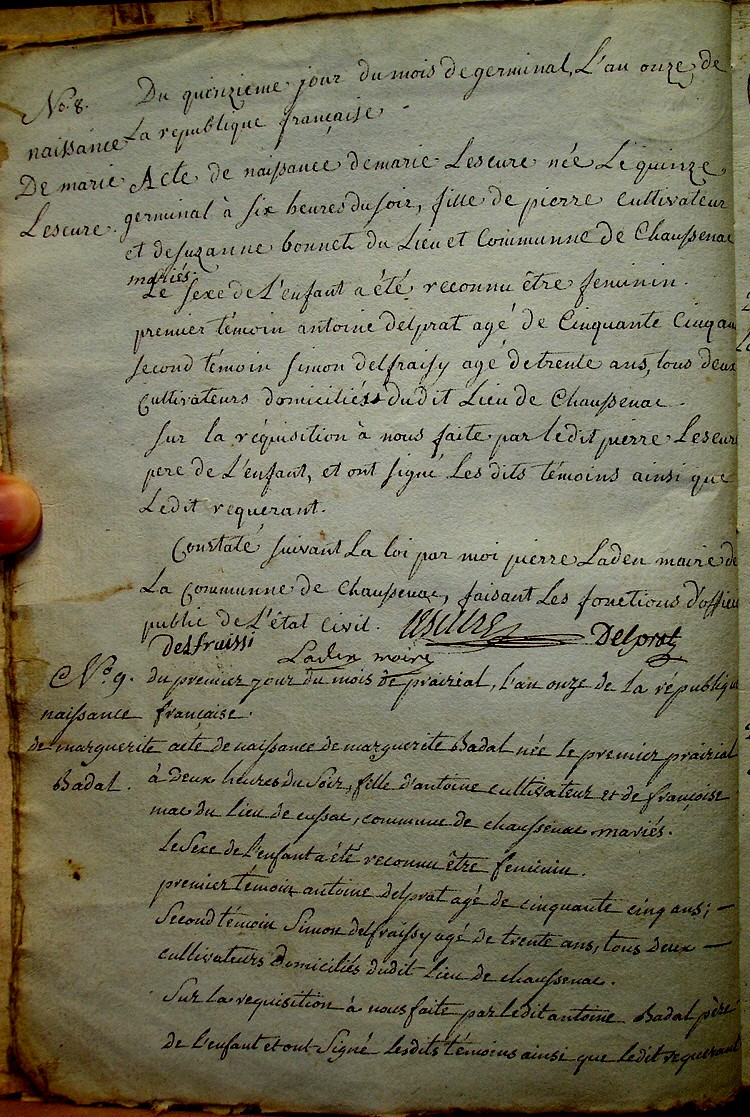 No. 8.
naissance
De marie
Leseure.
Du quinzieme jour du mois de germinal, L'an onze de
La republique française.
Acte de naissance de marie Leseure née Le quinze
germinal à six heures du soir, fille de pierre cultivateur
et de suzanne bonnet du Lieu et Communne de Chaussenac
mariés.
Le sexe de L'enfant a été reconnu être feminin.
premier témoin antoine delprat agé de Cinquante Cinq an
second témoin simon delfraissy agé de trente ans, tous deux
Cultivateurs domiciliés dudit Lieu de Chaussenac.
sur la réquisition à nous faite par ledit pierre Leseure
pere de L'enfant, et ont signé Les dits témoins ainsi que
Ledit requerant.
Constaté suivant La loi par moi pierre Laden maire de
La Communne de Chaussenac, faisant Les fonctions d'officier
public de L'état Civil. leseure Delprat
delfraissi
Laden maire
No. 9.
naissance
de marguerite
Badal.
du premier jour du mois de prairial, l'an onze de la républiq
française.
acte de naissance de marguerite Badal née le premier prairial
à Deux heures du soir, fille d'antoine cultivateur et de françoise
mac du lieu de cussac, commune de chaussenac mariés.
le Sexe de l'enfant a été reconnu être feminin.
premier témoin antoine delprat agé de cinquante cinq ans; —
Second témoin Simon delfraissy agé de trente ans, tous deux —
cultivateurs Domiciliés dudit Lieu de chaussenac.
Sur la requisition à nous faite par ledit antoine Badal père
de l'enfant et ont Signé lesdits témoins ainsi que ledit requerant